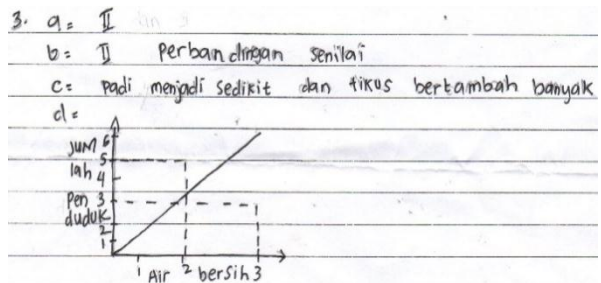 3. a = II
b = II perbandingan senilai
c = Padi menjadi sedikit dan tikus bertambah banyak
d =
JUM 6
5
lah 4
Pen 3
duduk
2
1
1 Air 2 bersih 3